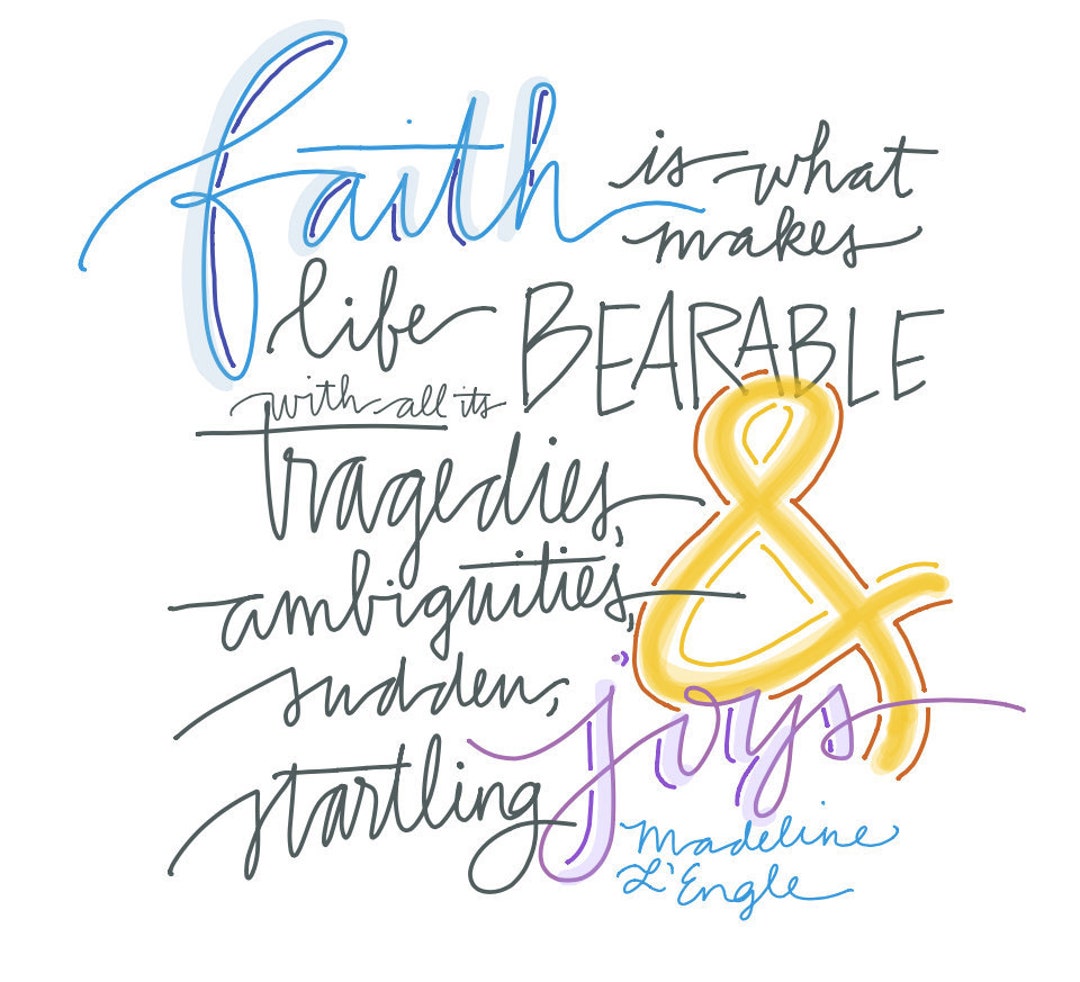 faith is what
makes
life BEARABLE
with all its
tragedies,
ambiguities,
&
sudden,
startling joys
Madeline
L'Engle